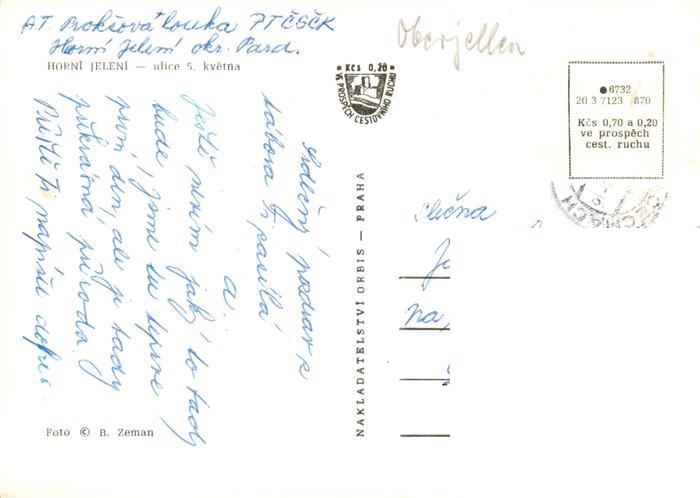 A.T. Prokšova louka PTČSČK
Horní Jelení okr. Pard.
HORNÍ JELENÍ — ulice 5. května
Oberjellen
Kčs 0,20
VE PROSPĚCH CESTOVNÍHO RUCHU
6732
20 3 7123 870
Kčs 0,70 a 0,20
ve prospěch
cest. ruchu
Srdečný pozdrav z
tábora Ti posílá
a.
Ještě nevím jaký to tady
bude, jsme tu teprve
první den, ale je tady
překrásná příroda.
Příští Ti napíši dopis.
NAKLADATELSTVÍ ORBIS — PRAHA
Slečna
na
Foto © B. Zeman